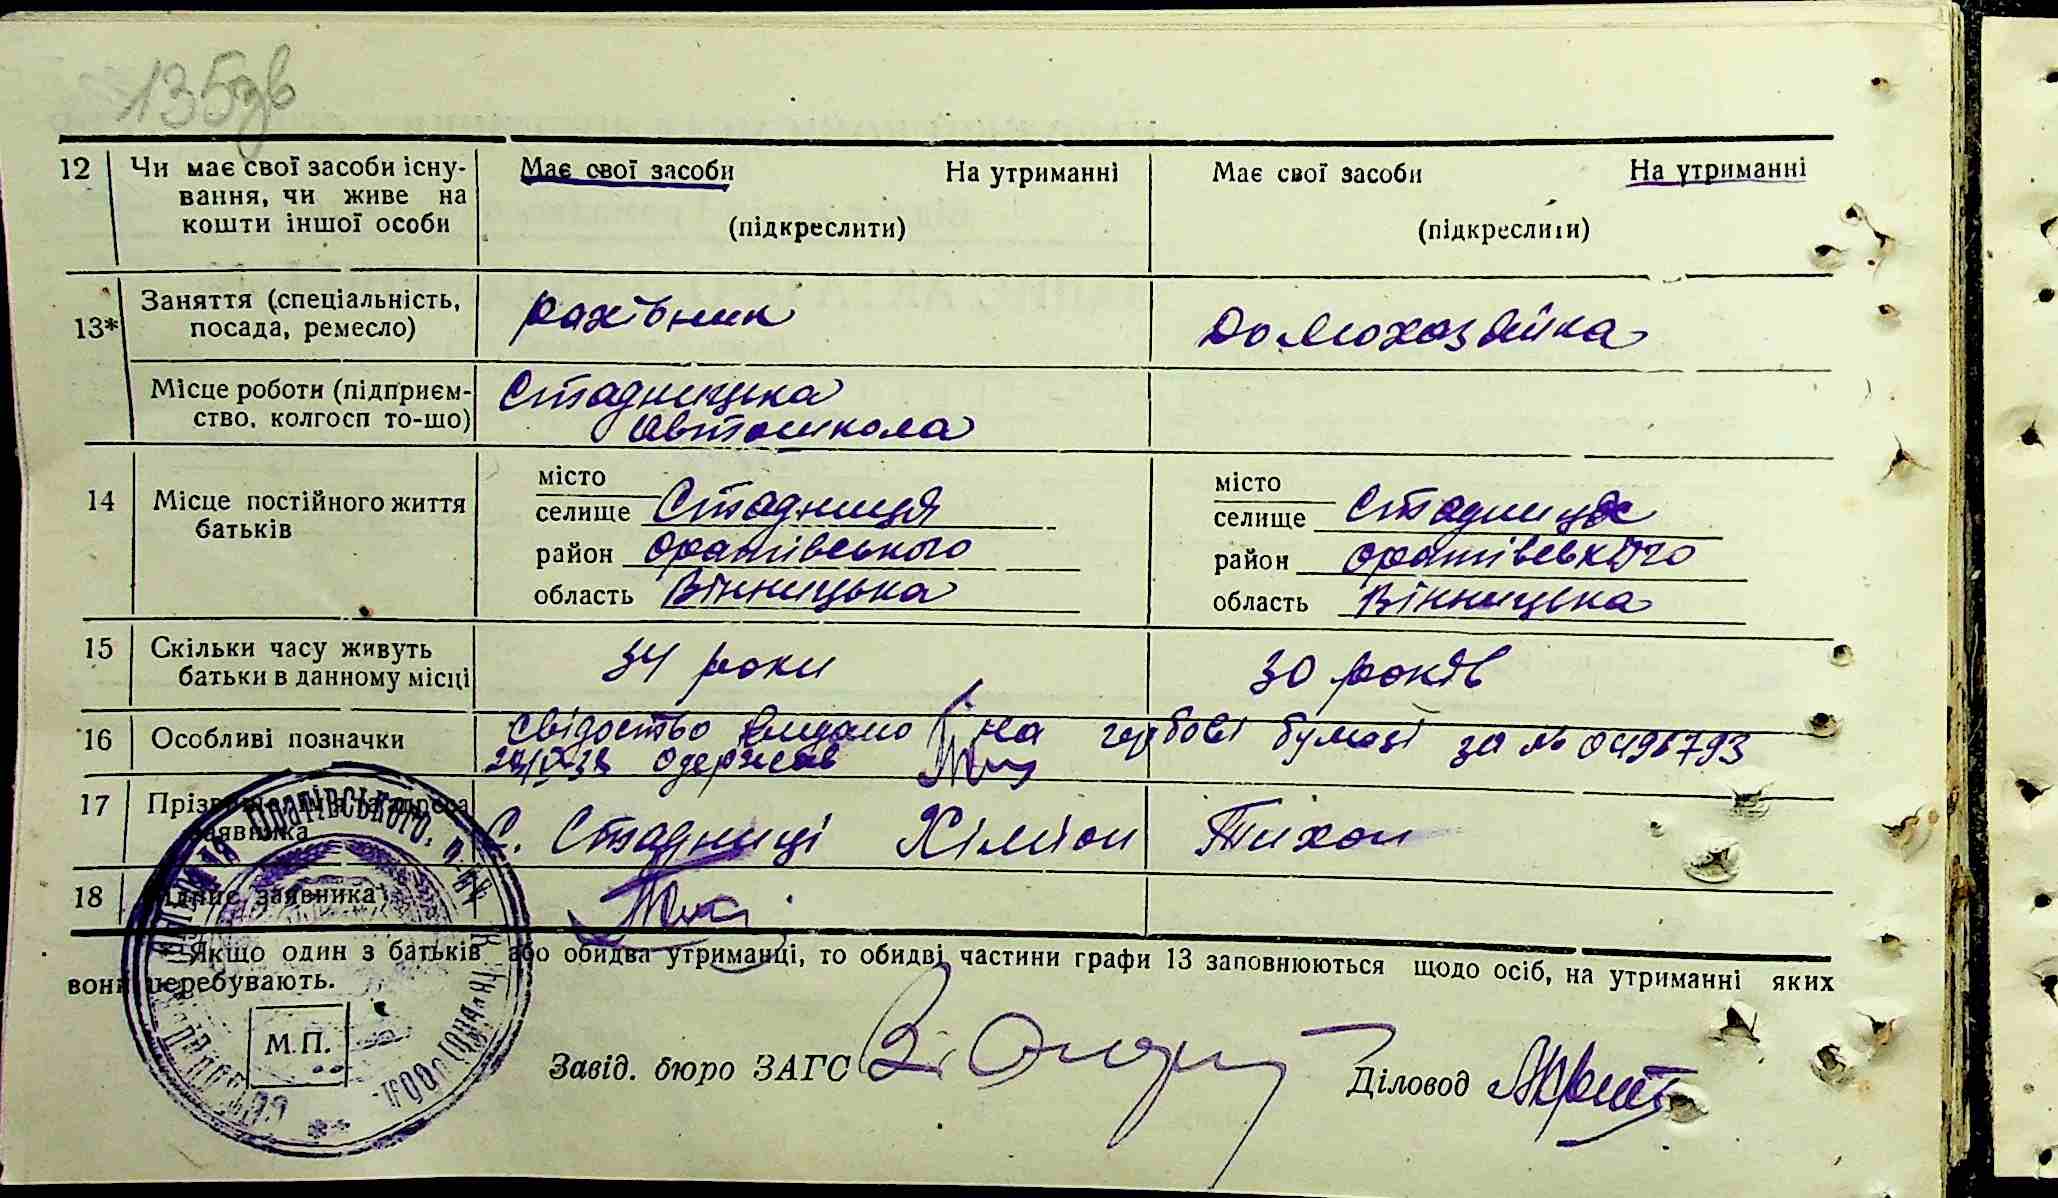 135зв
12 Чи має свої засоби існу- Має свої засоби На утриманні Має свої засоби На утриманні
вання, чи живе на
кошти іншої особи (підкреслити) (підкреслити)
13* Заняття (спеціальність, рахівник домохазяйка
посада, ремесло)
Місце роботи (підприєм- Стадницька
ство, колгосп то-що) Автошкола
місто місто
14 Місце постійного життя селище Стадниця селище Стадниця
батьків район Оратівського район Оратівського
область Вінницька область Вінницька
15 Скільки часу живуть 34 роки 30 років
батьки в данному місці
16 Особливі позначки Свідоство видано на гербові бумазі за № 0498793
одержав
17 Прізвище, ім'я, адреса с. Стадниці Хіміон Тихон
заявника
18 Підпис заявника
Якщо один з батьків або обидва утриманці, то обидві частини графи 13 заповнюються щодо осіб, на утриманні яких
вони перебувають.
М.П.
Завід. бюро ЗАГС Діловод
Оратівського